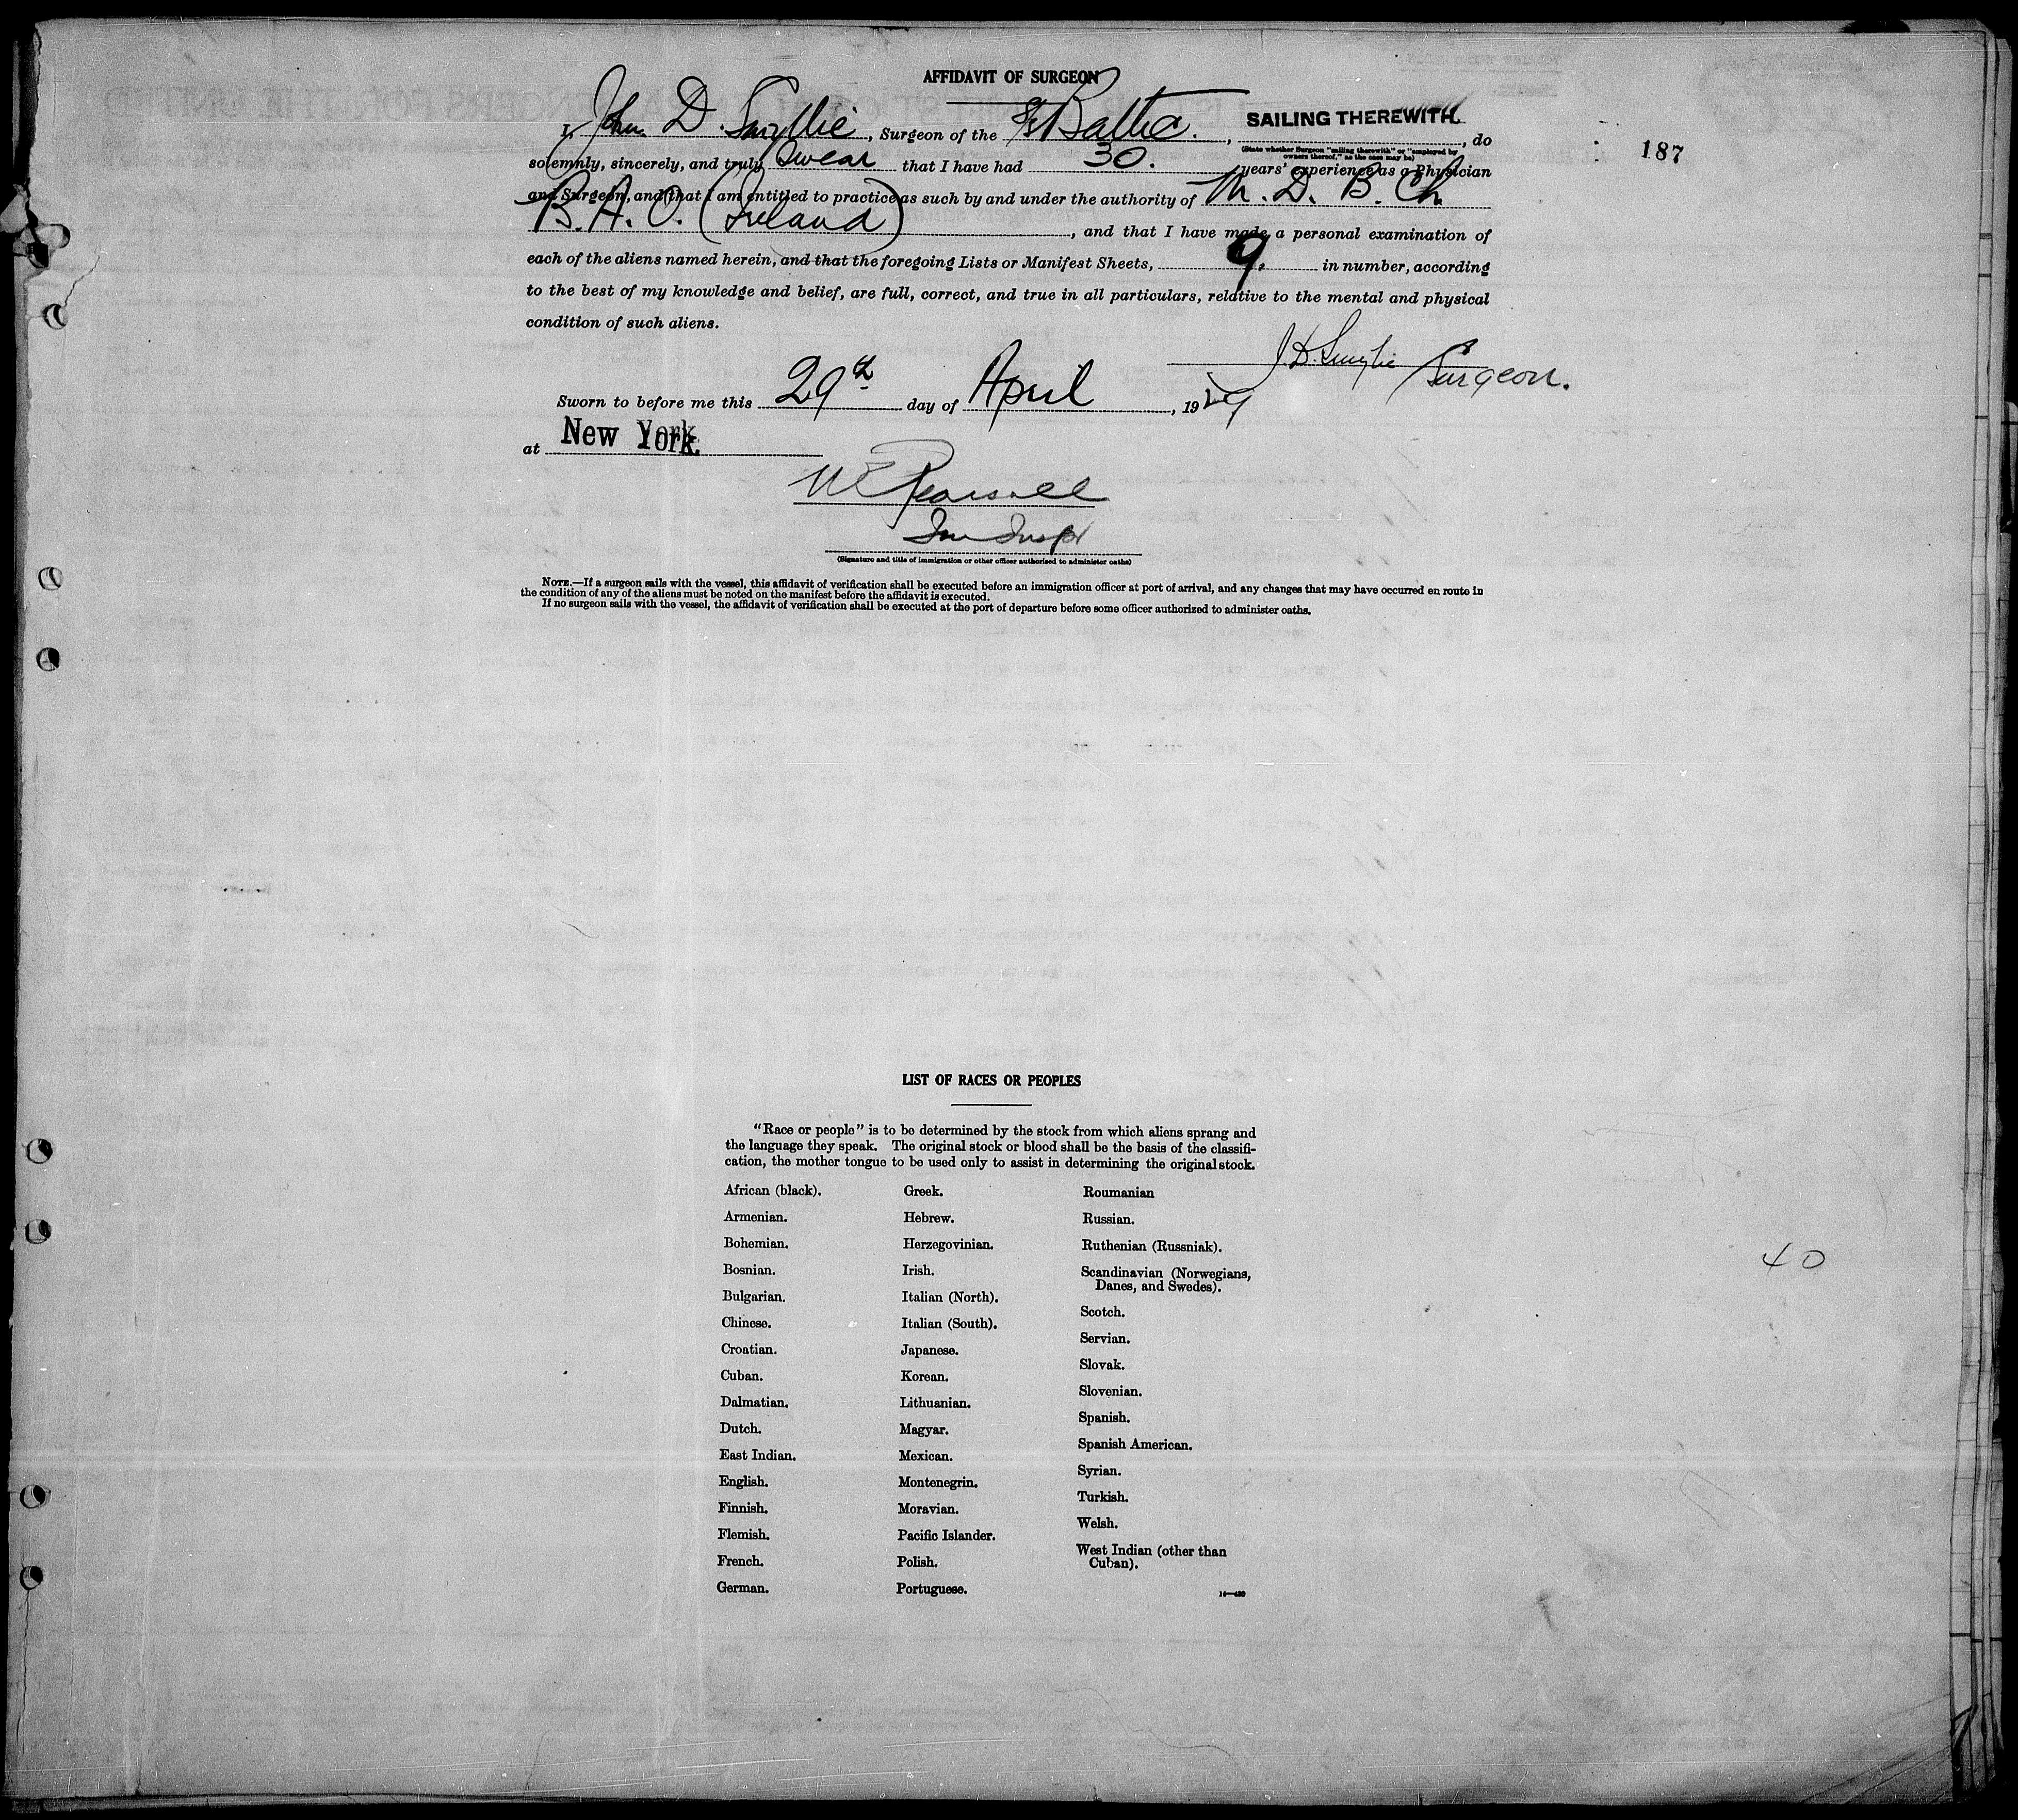 AFFIDAVIT OF SURGEON
I, John D. Smyllie, Surgeon of the SS Baltic., SAILING THEREWITH, do
(State whether Surgeon "sailing therewith" or "employed by
owners thereof," as the case may be)
187
solemnly, sincerely, and truly swear that I have had 30. years' experience as a Physician
and Surgeon, and that I am entitled to practice as such by and under the authority of M.D. B.Ch.
B.A.O. (Ireland), and that I have made a personal examination of
each of the aliens named herein, and that the foregoing Lists or Manifest Sheets, 9. in number, according
to the best of my knowledge and belief, are full, correct, and true in all particulars, relative to the mental and physical
condition of such aliens.
Surgeon.
Sworn to before me this 29th day of April, 1929
at New York.
(Signature and title of immigration or other officer authorized to administer oaths)
NOTE.—If a surgeon sails with the vessel, this affidavit of verification shall be executed before an immigration officer at port of arrival, and any changes that may have occurred en route in
the condition of any of the aliens must be noted on the manifest before the affidavit is executed.
If no surgeon sails with the vessel, the affidavit of verification shall be executed at the port of departure before some officer authorized to administer oaths.
LIST OF RACES OR PEOPLES
"Race or people" is to be determined by the stock from which aliens sprang and
the language they speak. The original stock or blood shall be the basis of the classifi-
cation, the mother tongue to be used only to assist in determining the original stock.
African (black).
Armenian.
Bohemian.
Bosnian.
Bulgarian.
Chinese.
Croatian.
Cuban.
Dalmatian.
Dutch.
East Indian.
English.
Finnish.
Flemish.
French.
German.
Greek.
Hebrew.
Herzegovinian.
Irish.
Italian (North).
Italian (South).
Japanese.
Korean.
Lithuanian.
Magyar.
Mexican.
Montenegrin.
Moravian.
Pacific Islander.
Polish.
Portuguese.
Roumanian
Russian.
Ruthenian (Russniak).
Scandinavian (Norwegians,
Danes, and Swedes).
Scotch.
Servian.
Slovak.
Slovenian.
Spanish.
Spanish American.
Syrian.
Turkish.
Welsh.
West Indian (other than
Cuban).
40